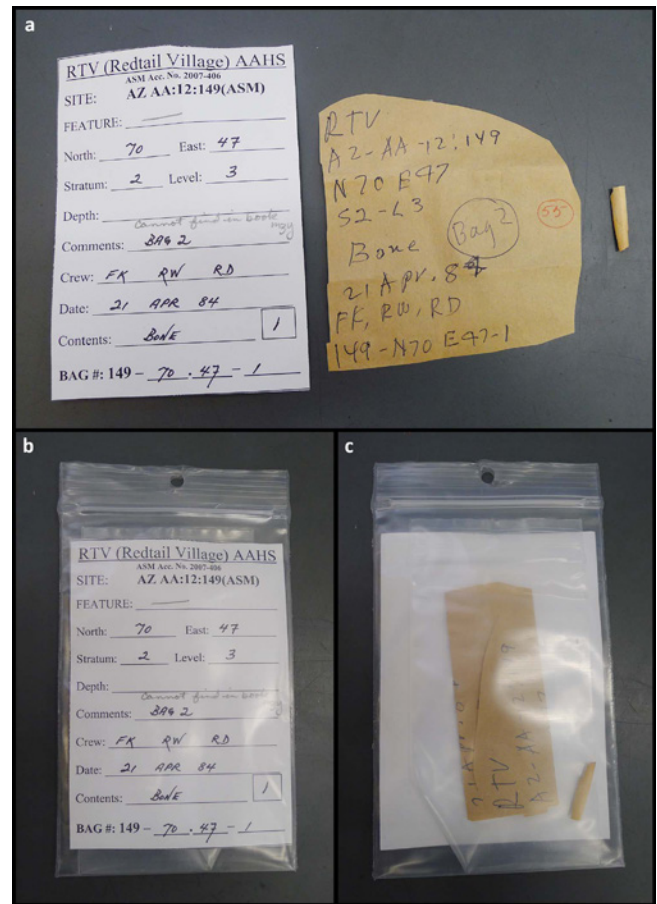 a
RTV (Redtail Village) AAHS
ASM Acc. No. 2007-406
SITE: AZ AA:12:149(ASM)
FEATURE:
North: 70 East: 47
Stratum: 2 Level: 3
Depth:
Cannot find in book
Comments: BAG 2
Crew: FK RW RD
Date: 21 APR 84
Contents: BONE 1
BAG #: 149 – 70 . 47 – 1
RTV
AZ-AA-12:149
N70 E47
S2-L3
Bone
Bag 2
55
21 Apr. 84
FK, RW, RD
149-N70 E47-1
b
RTV (Redtail Village) AAHS
ASM Acc. No. 2007-406
SITE: AZ AA:12:149(ASM)
FEATURE:
North: 70 East: 47
Stratum: 2 Level: 3
Depth:
Cannot find in book
Comments: BAG 2
Crew: FK RW RD
Date: 21 APR 84
Contents: BONE 1
BAG #: 149 – 70 . 47 – 1
c
RTV
AZ-AA